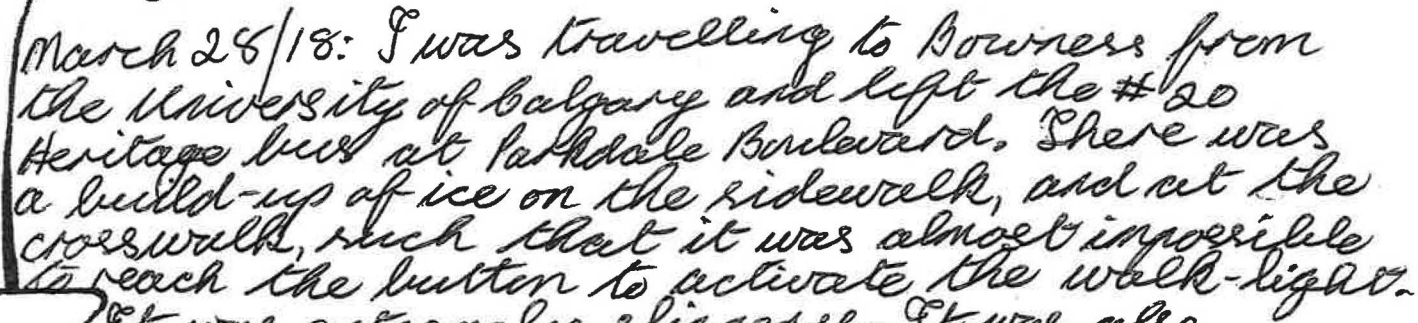 March 28/18: I was travelling to Bowness from
the University of Calgary and left the #20
Heritage bus at Parkdale Boulevard. There was
a build-up of ice on the sidewalk, and at the
crosswalk, such that it was almost impossible
to reach the button to activate the walk-light.
It was extremely slippery. It was also